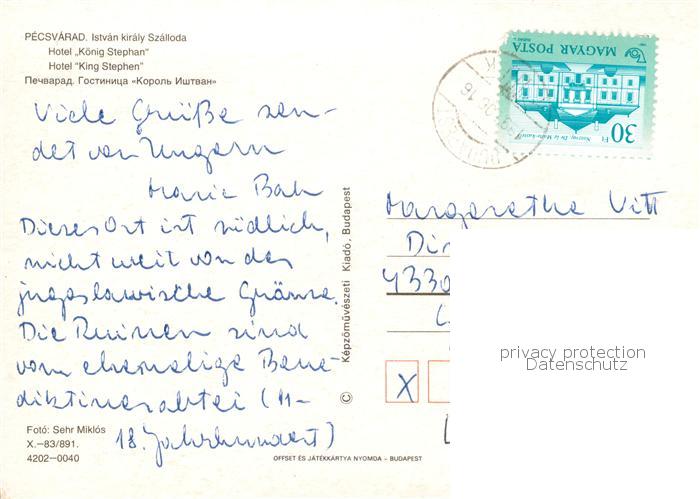 PÉCSVÁRAD. István király Szálloda
Hotel „König Stephan"
Hotel "King Stephen"
Печварад. Гостиница «Король Иштван»
Viele Grüße sen-
det von Ungarn
Marie Bak
Dieses Ort ist südlich,
nicht weit von des
jugoslawische Gränze.
Die Ruinen sind
vom ehemalige Bene-
diktinerabtei (11-
18. Jahrhundert)
Fotó: Sehr Miklós
X.–83/891.
4202–0040
© Képzőművészeti Kiadó, Budapest
OFFSET ÉS JÁTÉKKÁRTYA NYOMDA – BUDAPEST
MAGYAR POSTA
30 Ft
Margaretha Vitt
4330
X
privacy protection
Datenschutz